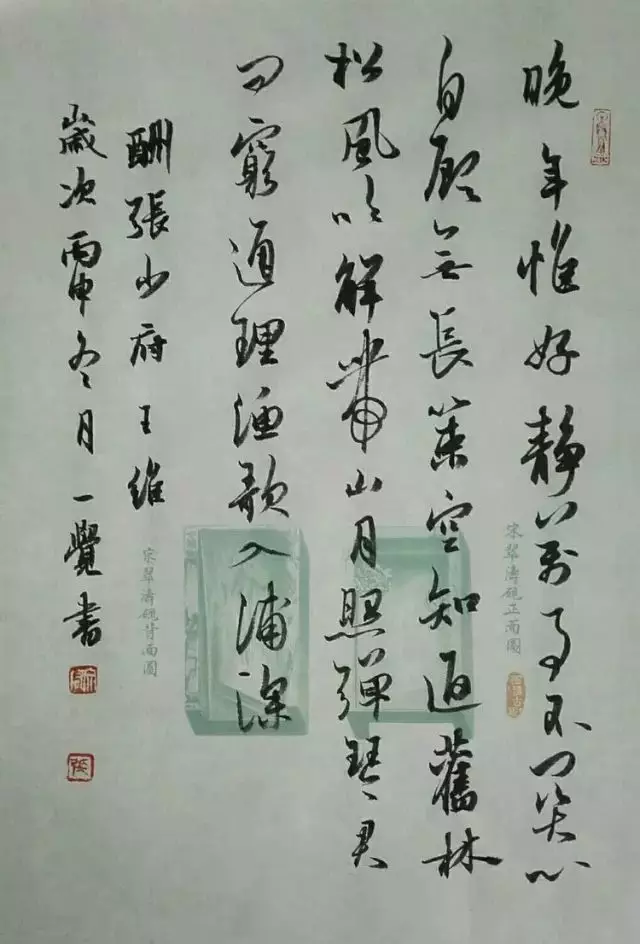 晚年惟好靜萬事不関心
自顧無長策空知返舊林
松風吹解帶山月照彈琴君
問窮通理漁歌入浦深
酬張少府王維
歲次丙申冬月一覺書
宋翠濤硯正面圖
宋翠濤硯背面圖